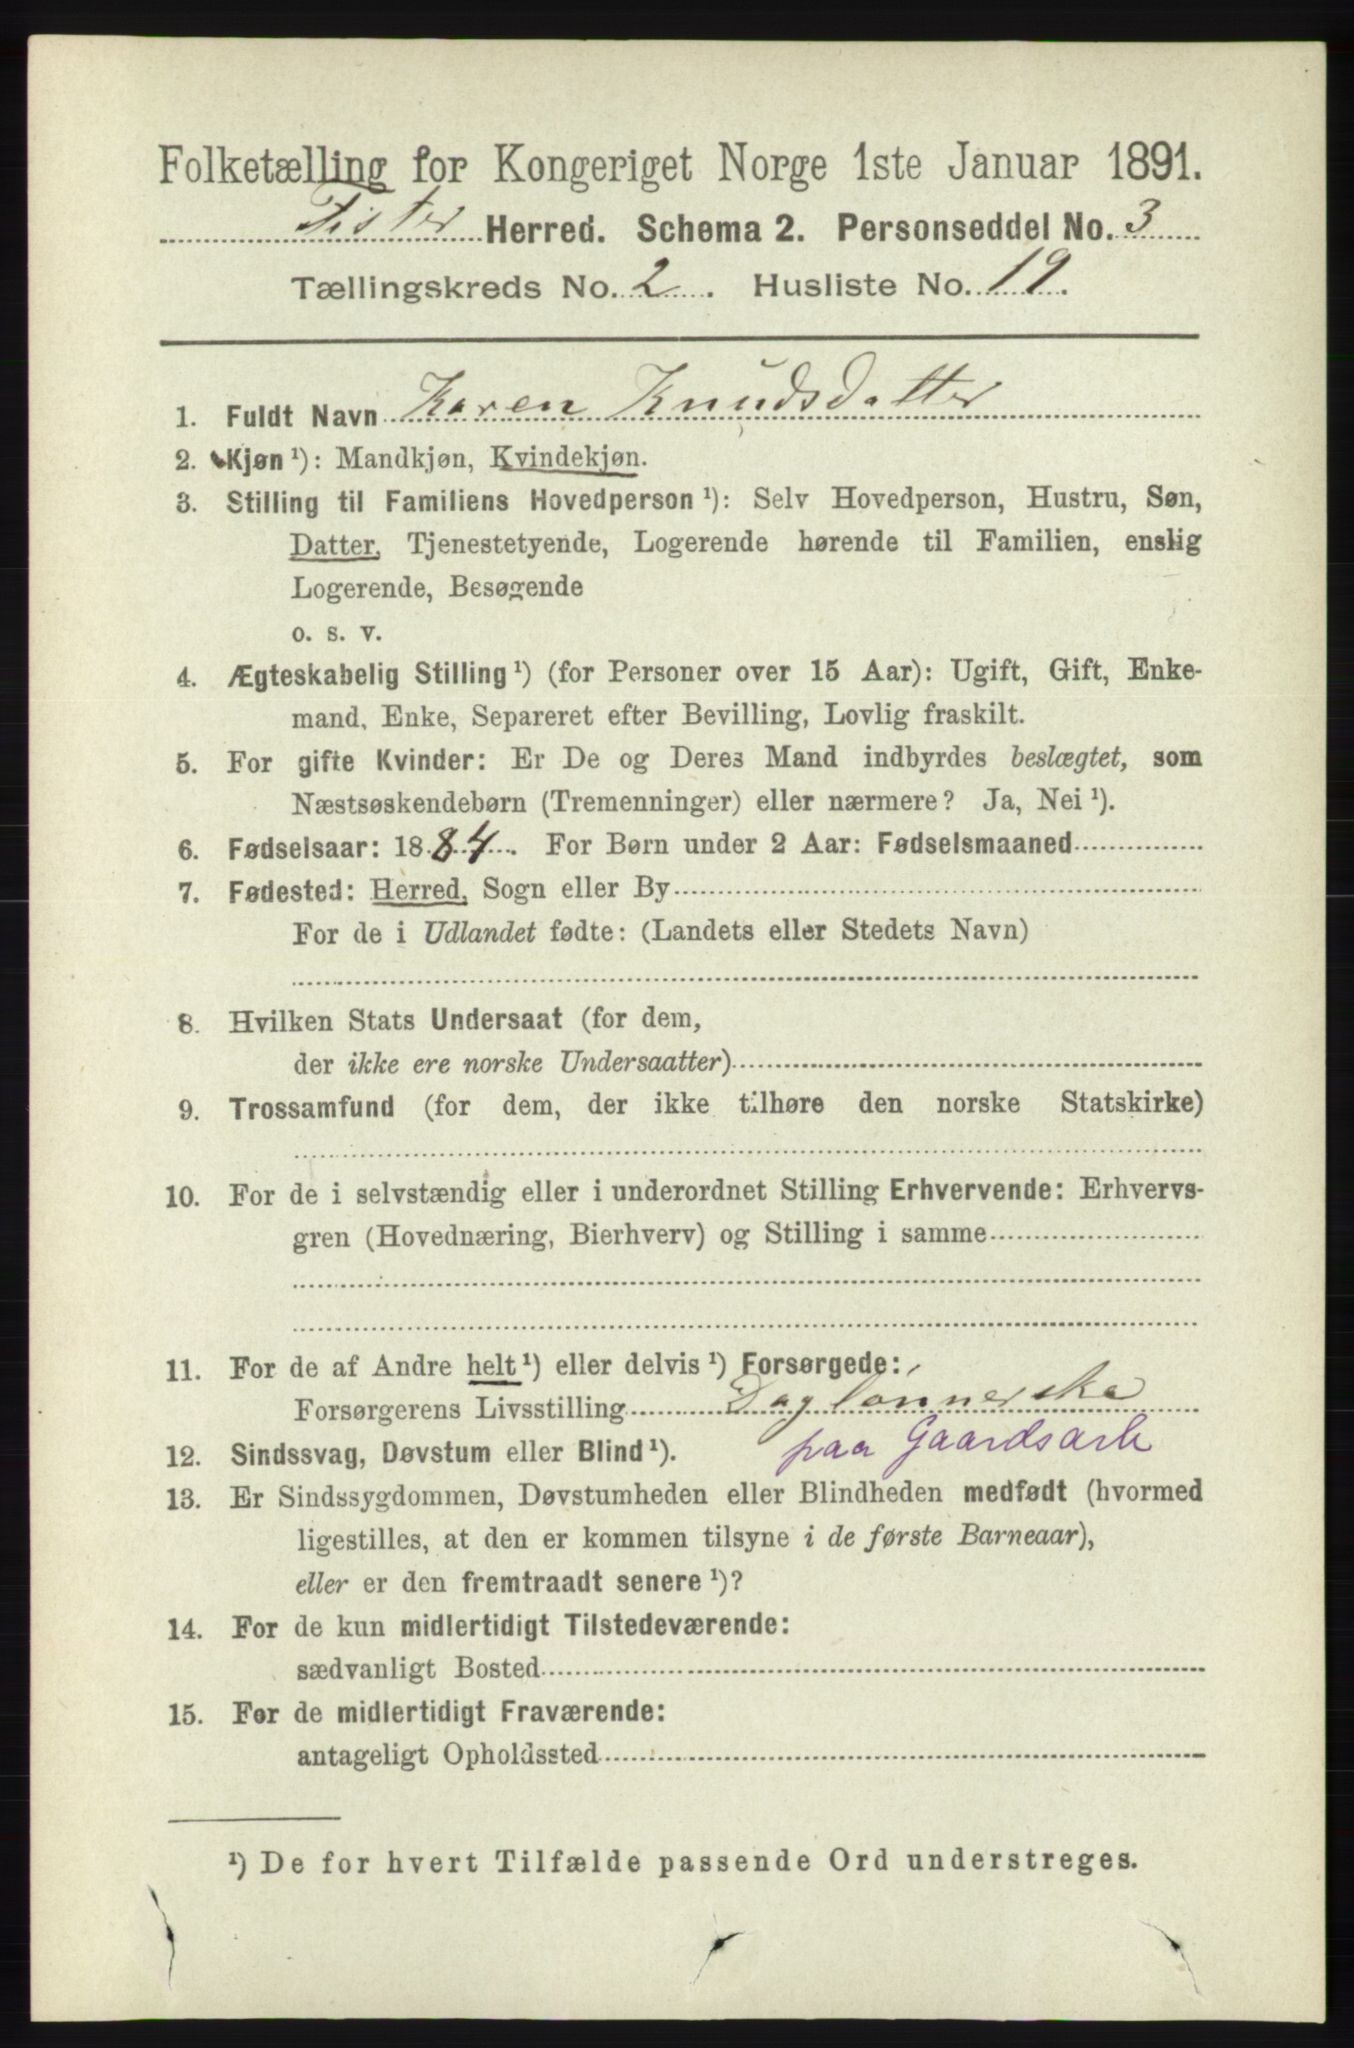 Folketælling for Kongeriget Norge 1ste Januar 1891.
Fister Herred. Schema 2. Personseddel No. 3
Tællingskreds No. 2. Husliste No. 19.
1. Fuldt Navn Karen Knudsdatter
2. Kjøn ¹): Mandkjøn, Kvindekjøn.
3. Stilling til Familiens Hovedperson ¹): Selv Hovedperson, Hustru, Søn,
Datter, Tjenestetyende, Logerende hørende til Familien, enslig
Logerende, Besøgende
o. s. v.
4. Ægteskabelig Stilling ¹) (for Personer over 15 Aar): Ugift, Gift, Enke-
mand, Enke, Separeret efter Bevilling, Lovlig fraskilt.
5. For gifte Kvinder: Er De og Deres Mand indbyrdes beslægtet, som
Næstsøskendebørn (Tremenninger) eller nærmere? Ja, Nei ¹).
6. Fødselsaar: 1884. For Børn under 2 Aar: Fødselsmaaned
7. Fødested: Herred, Sogn eller By
For de i Udlandet fødte: (Landets eller Stedets Navn)
8. Hvilken Stats Undersaat (for dem,
der ikke ere norske Undersaatter)
9. Trossamfund (for dem, der ikke tilhøre den norske Statskirke)
10. For de i selvstændig eller i underordnet Stilling Erhvervende: Erhvervs-
gren (Hovednæring, Bierhverv) og Stilling i samme
11. For de af Andre helt ¹) eller delvis ¹) Forsørgede:
Forsørgerens Livsstilling Daglønnerske
12. Sindssvag, Døvstum eller Blind ¹). paa Gaardsarb
13. Er Sindssygdommen, Døvstumheden eller Blindheden medfødt (hvormed
ligestilles, at den er kommen tilsyne i de første Barneaar),
eller er den fremtraadt senere ¹)?
14. For de kun midlertidigt Tilstedeværende:
sædvanligt Bosted
15. For de midlertidigt Fraværende:
antageligt Opholdssted
¹) De for hvert Tilfælde passende Ord understreges.